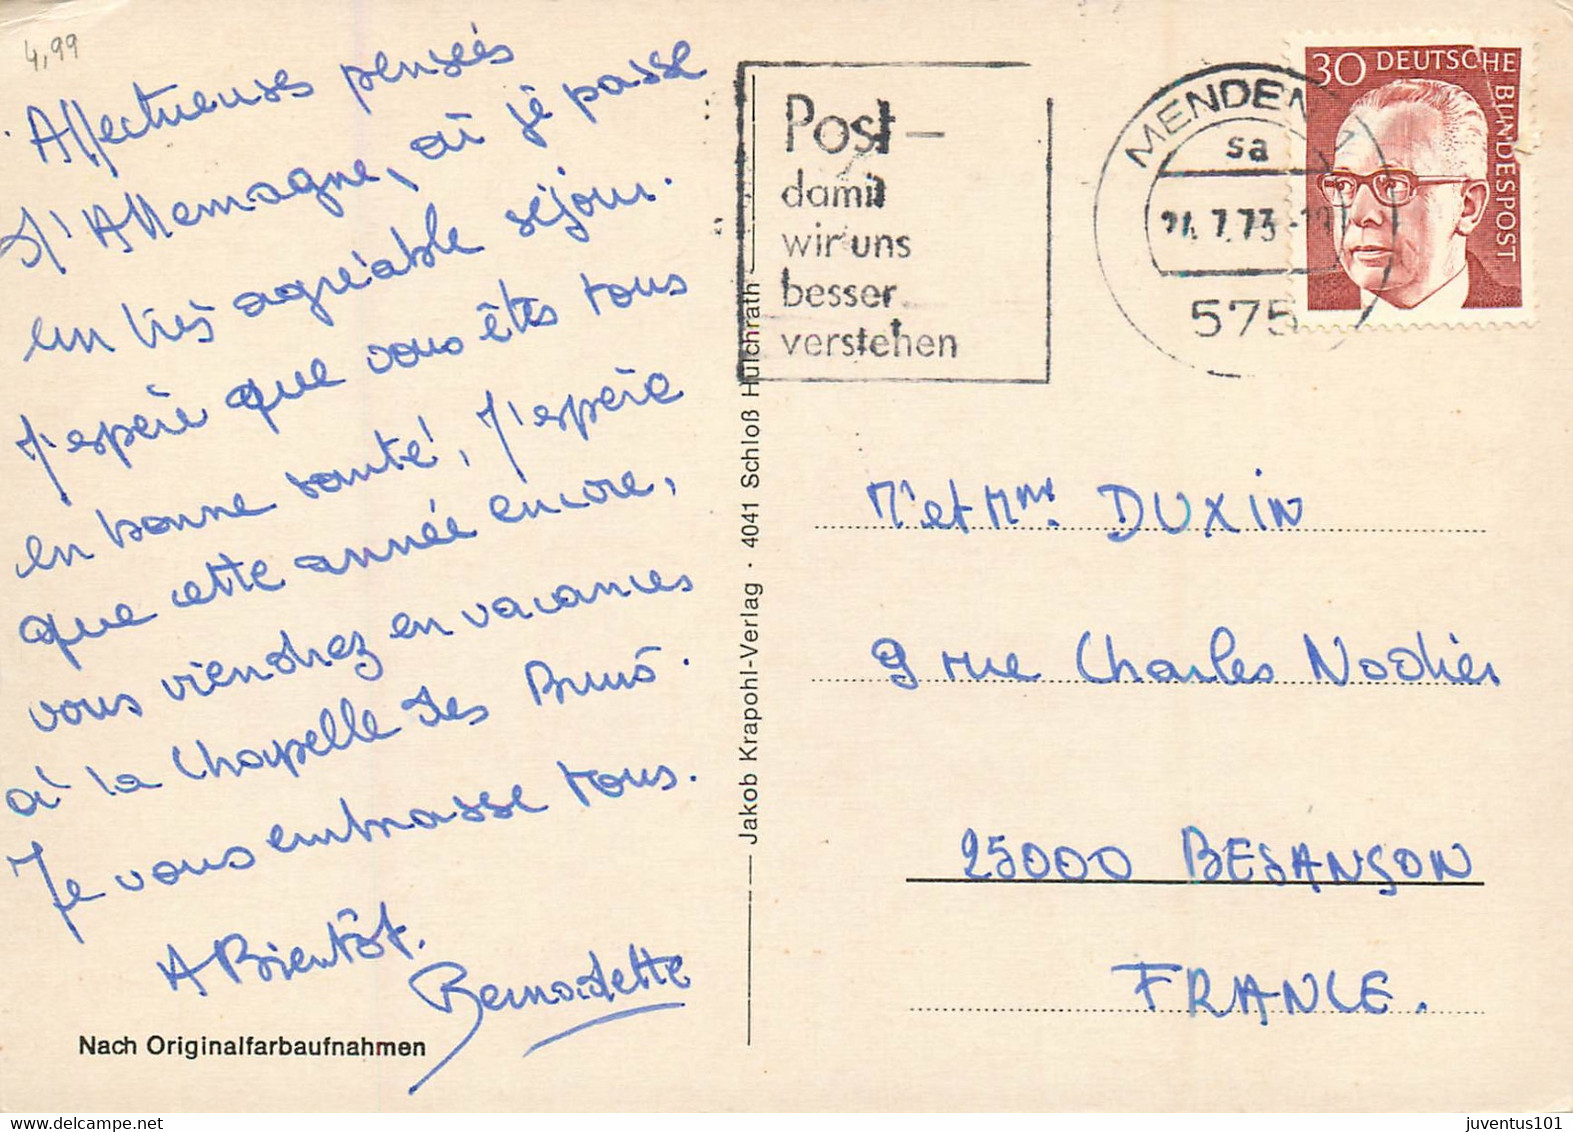 4,99
Affectueuses pensées
d'Allemagne, où je passe
un très agréable séjour.
J'espère que vous êtes tous
en bonne santé, J'espère
que cette année encore,
vous viendrez en vacances
à la Chapelle des Bruns.
Je vous embrasse tous.
A Bientôt.
Bernadette
Nach Originalfarbaufnahmen
Jakob Krapohl-Verlag · 4041 Schloß Hülchrath
Post –
damit
wir uns
besser
verstehen
MENDEN 1
sa
21.7.73
575
30 DEUTSCHE
BUNDESPOST
Mr et Mme. DUXIN
9 rue Charles Nodier
25000 BESANÇON
FRANCE.
juventus101